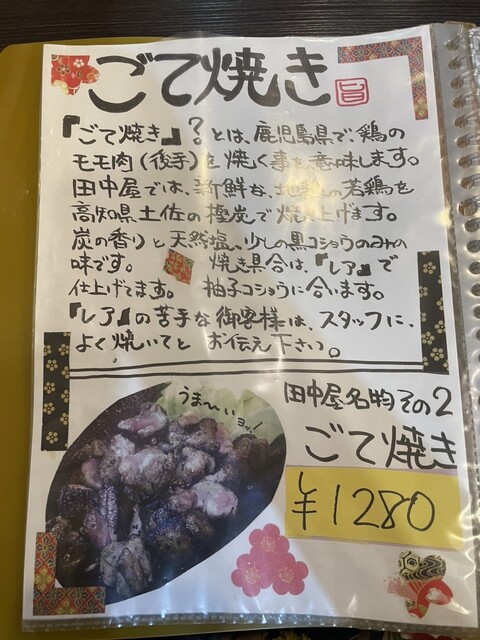 ごて焼き
旨
『ごて焼き』?とは、鹿児島県で、鶏の
モモ肉(後手)を焼く事を意味します。
田中屋では、新鮮な、地鶏の若鶏を
高知県土佐の樫炭で焼き上げます。
炭の香りと天然塩、少しの黒コショウのみの
味です。焼き具合は、『レア』で
仕上げてます。柚子コショウに合います。
『レア』の苦手な御客様は、スタッフに、
よく焼いてとお伝え下さい。
うま〜いョッ!
田中屋名物その2
ごて焼き
¥1280